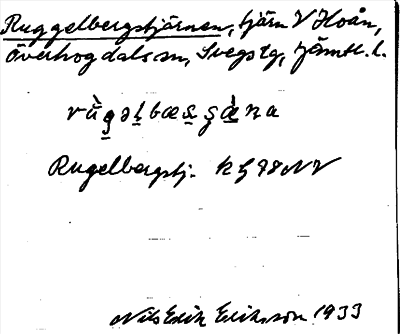 Ruggelbergstjärnen, tjärn V Hoån,
Överhogdals sn, Svegs tg, Jämtl. l.
Rugelbergstj. k ç 98 NV
Nils Erik Eriksson 1933